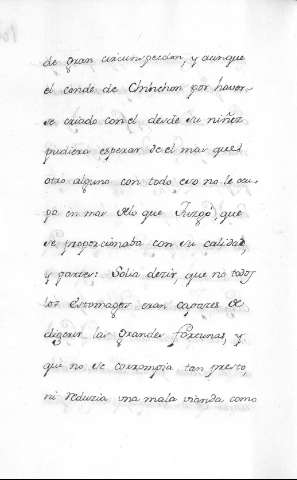 de gran circunspeccion, y aunque
el conde de Chinchon por haver-
se criado con el desde su niñez
pudiera esperar de el mas que
otro alguno con todo eso no le ocu-
pò en mas de lo que Juzgó, que
se proporcionaba con su calidad,
y partes: Solia dezir, que no todos
los estomagos eran capazes de
digerir las grandes fortunas, y
que no se corrompia tan presto,
ni reduzia una mala vianda como